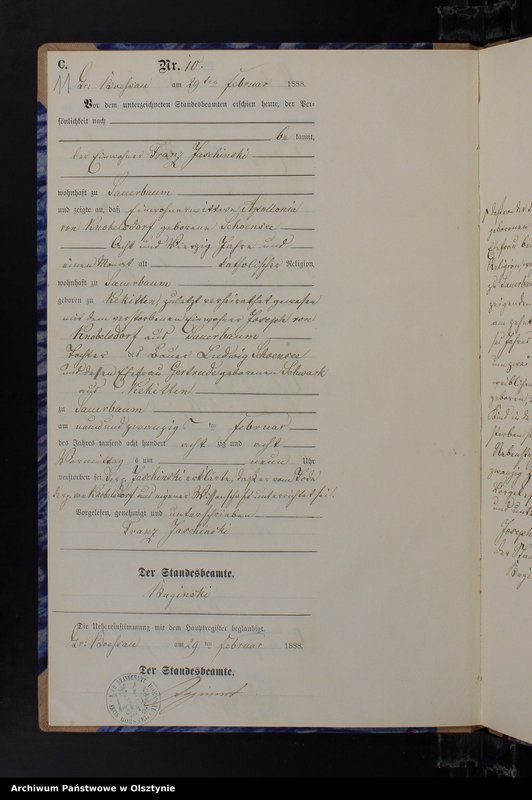 C.
Nr. 10.
11
Gr: Boessau am 29ten Februar 1888.
Vor dem unterzeichneten Standesbeamten erschien heute, der Per-
sönlichkeit nach
be kannt,
der Einwohner Franz Jaschinski
wohnhaft zu Sauerbaum
und zeigte an, daß Einwohnerwittwe Apollonia
von Knobelsdorf geborene Schoensee
Acht und Vierzig Jahre und
einen Monat alt katholischer Religion,
wohnhaft zu Sauerbaum
geboren zu Kekitten, zuletzt verheirathet gewesen
mit dem verstorbenen Einwohner Joseph von
Knobelsdorf aus Sauerbaum
Tochter des Bauer Ludwig Schoensee
und dessen Ehefrau Gertrude geborenen Schwark
aus Kekitten
zu Sauerbaum
am neun und zwanzig ten Februar
des Jahres tausend acht hundert acht zig und acht
Vormittag s um neun Uhr
verstorben sei. Der p. Jaschinski erklärte, daß er vom Tode
der p. von Knobelsdorf aus eigener Wissenschaft unterrichtet sei.
Vorgelesen, genehmigt und unterschrieben
Franz Jaschinski
Der Standesbeamte.
Baginski
Die Uebereinstimmung mit dem Hauptregister beglaubigt.
Gr: Boessau am 29 ten Februar 1888.
Der Standesbeamte.
Archiwum Państwowe w Olsztynie